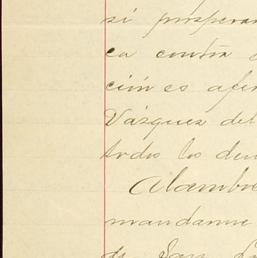 si prosperar
ca contra
ción es afir
Vázquez del
todo lo dem
Alambre
mandarme
de San Lu